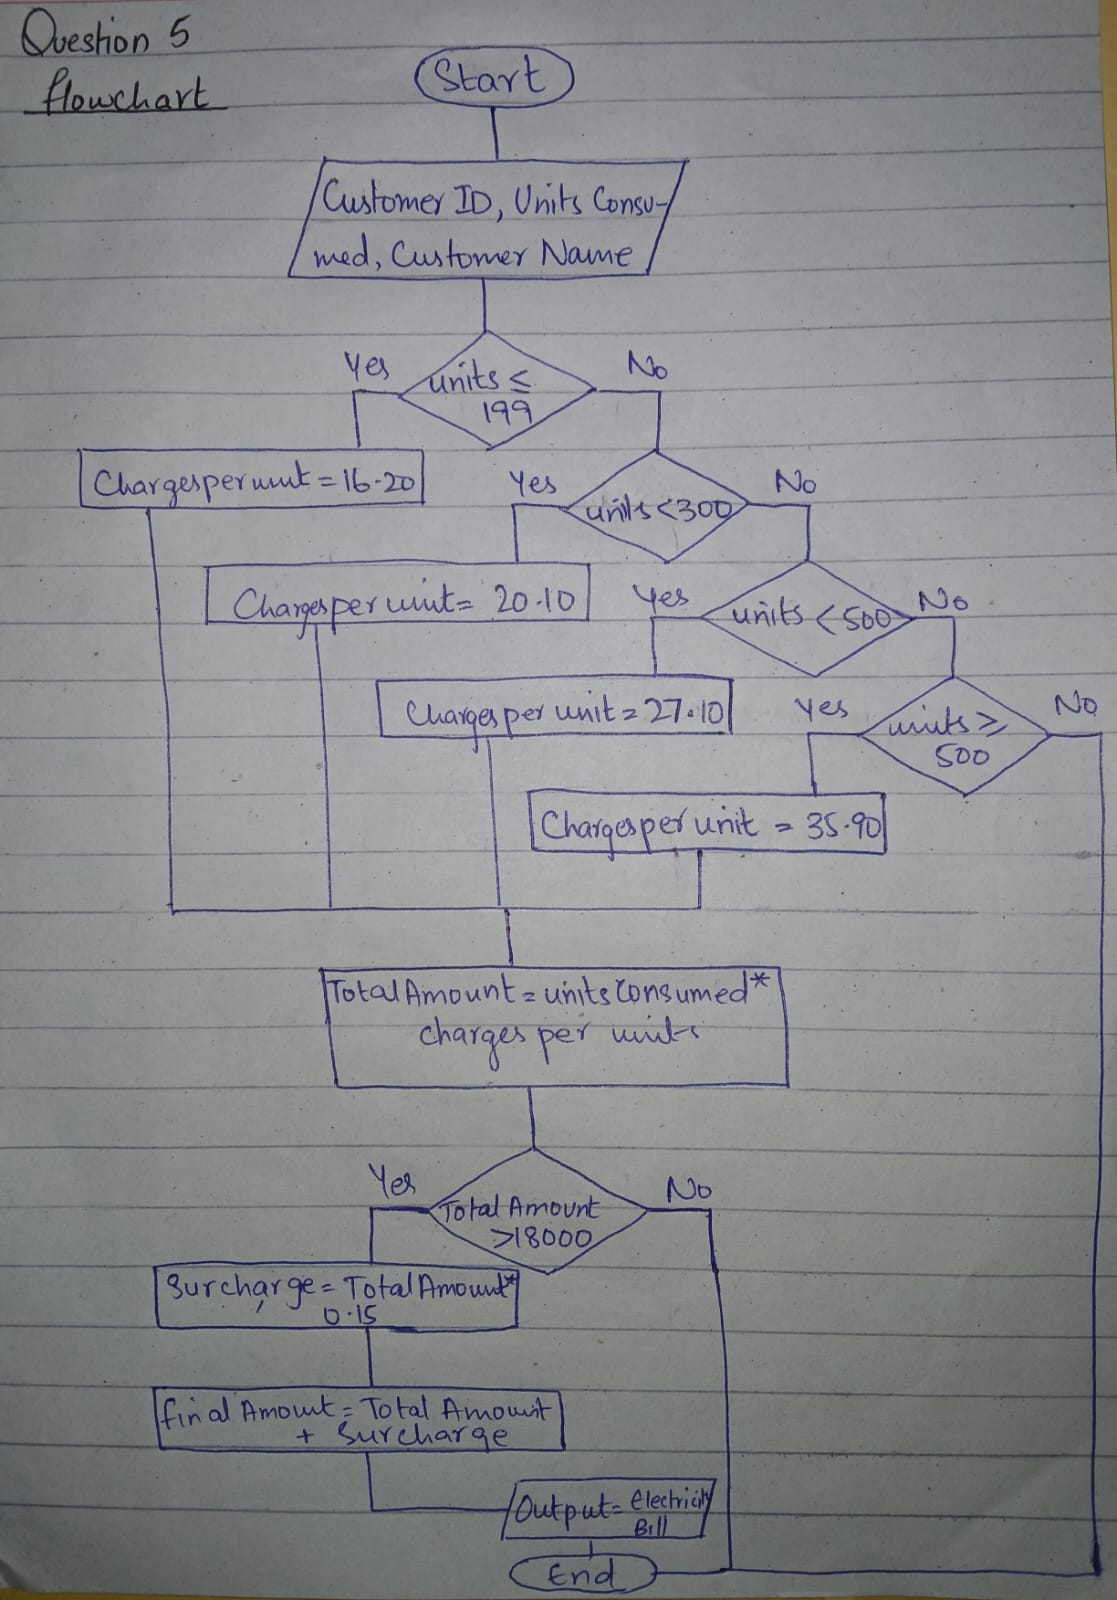 Question 5
flowchart
Start
Customer ID, Units Consu-
med, Customer Name
Yes
No
units ≤
199
Chargesperunit = 16.20
Yes
No
units <300
Chargesper unit = 20.10
Yes
No
units < 500
Charges per unit = 27.10
Yes
No
units ≥
500
Chargesper unit = 35.90
Total Amount = units Consumed*
charges per units
Yes
No
Total Amount
>18000
Surcharge = Total Amount*
0.15
final Amount = Total Amount
+ Surcharge
Output = Electricity
Bill
End